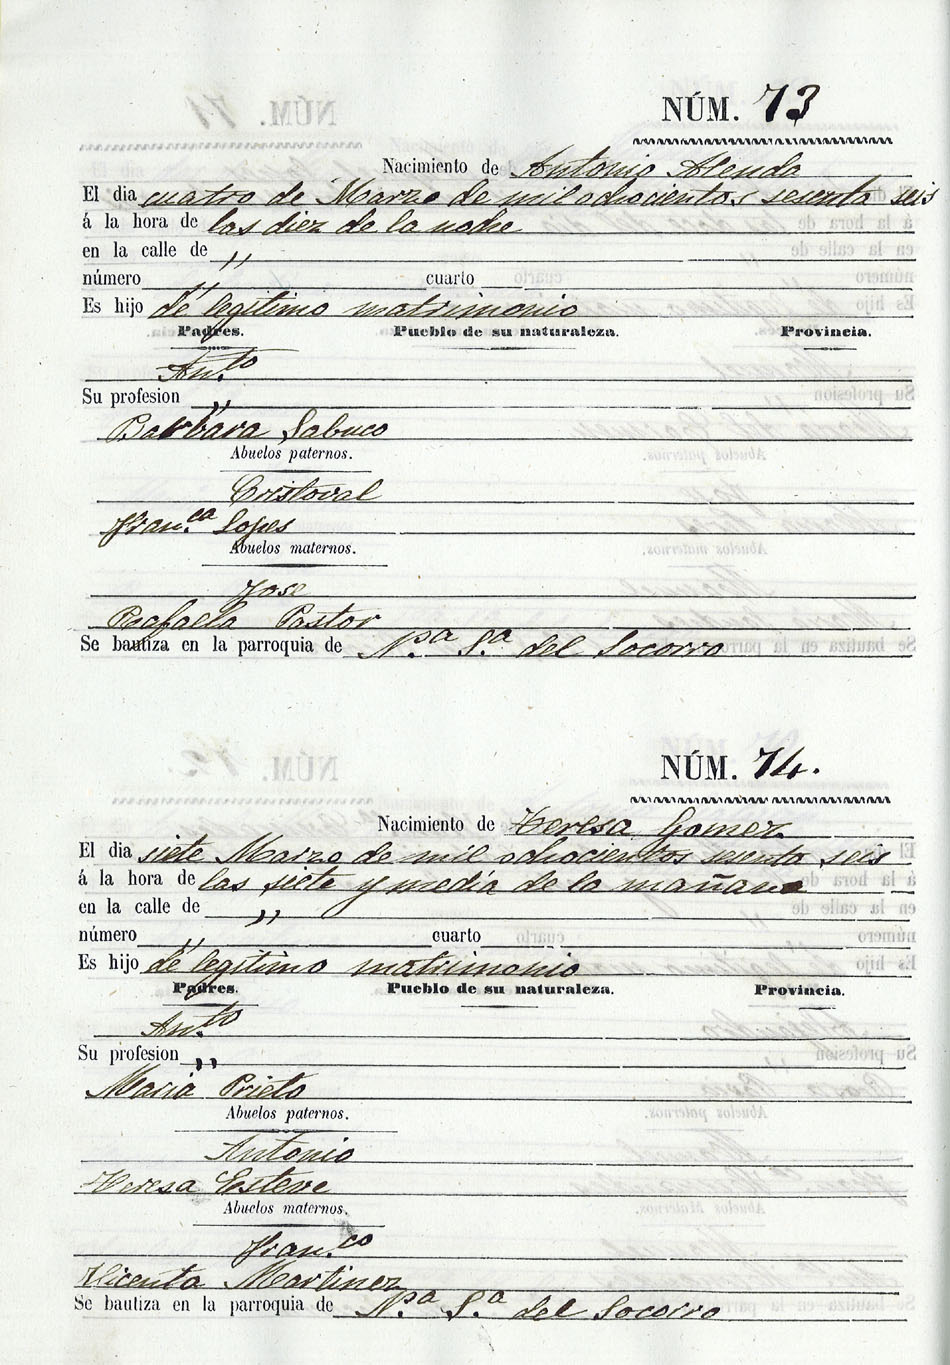 NÚM. 73
Nacimiento de Antonio Alenda
El dia cuatro de Marzo de mil ochocientos sesenta seis
á la hora de las diez de la noche
en la calle de "
número " cuarto
Es hijo de legitimo matrimonio
Padres. Pueblo de su naturaleza. Provincia.
Ant.to
Su profesion "
Barbara Sabuco
Abuelos paternos.
Cristoval
Fran.ca Lopes
Abuelos maternos.
Jose
Rafaela Pastor
Se bautiza en la parroquia de N.a S.a del Socorro
NÚM. 74.
Nacimiento de Teresa Gomez
El dia siete Marzo de mil ochocientos sesenta seis
á la hora de las siete y media de la mañana
en la calle de "
número " cuarto
Es hijo de legitimo matrimonio
Padres. Pueblo de su naturaleza. Provincia.
Ant.to
Su profesion "
Maria Prieto
Abuelos paternos.
Antonio
Teresa Esteve
Abuelos maternos.
Fran.co
Vicenta Martinez
Se bautiza en la parroquia de N.a S.a del Socorro